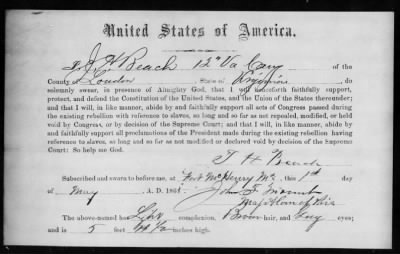 United States of America.
I, J H Beach 12" Va Cavy of the
County of Loudon, State of Virginia, do
solemnly swear, in presence of Almighty God, that I will henceforth faithfully support,
protect, and defend the Constitution of the United States, and the Union of the States thereunder;
and that I will, in like manner, abide by and faithfully support all acts of Congress passed during
the existing rebellion with reference to slaves, so long and so far as not repealed, modified, or held
void by Congress, or by decision of the Supreme Court; and that I will, in like manner, abide by
and faithfully support all proclamations of the President made during the existing rebellion having
reference to slaves, so long and so far as not modified or declared void by decision of the Supreme
Court: So help me God.
J H Beach
Subscribed and sworn to before me, at Fort McHenry Md, this 1st day
of May A. D. 186
John F
The above-named has Light complexion, Brown hair, and eyes;
and is 5 feet inches high.